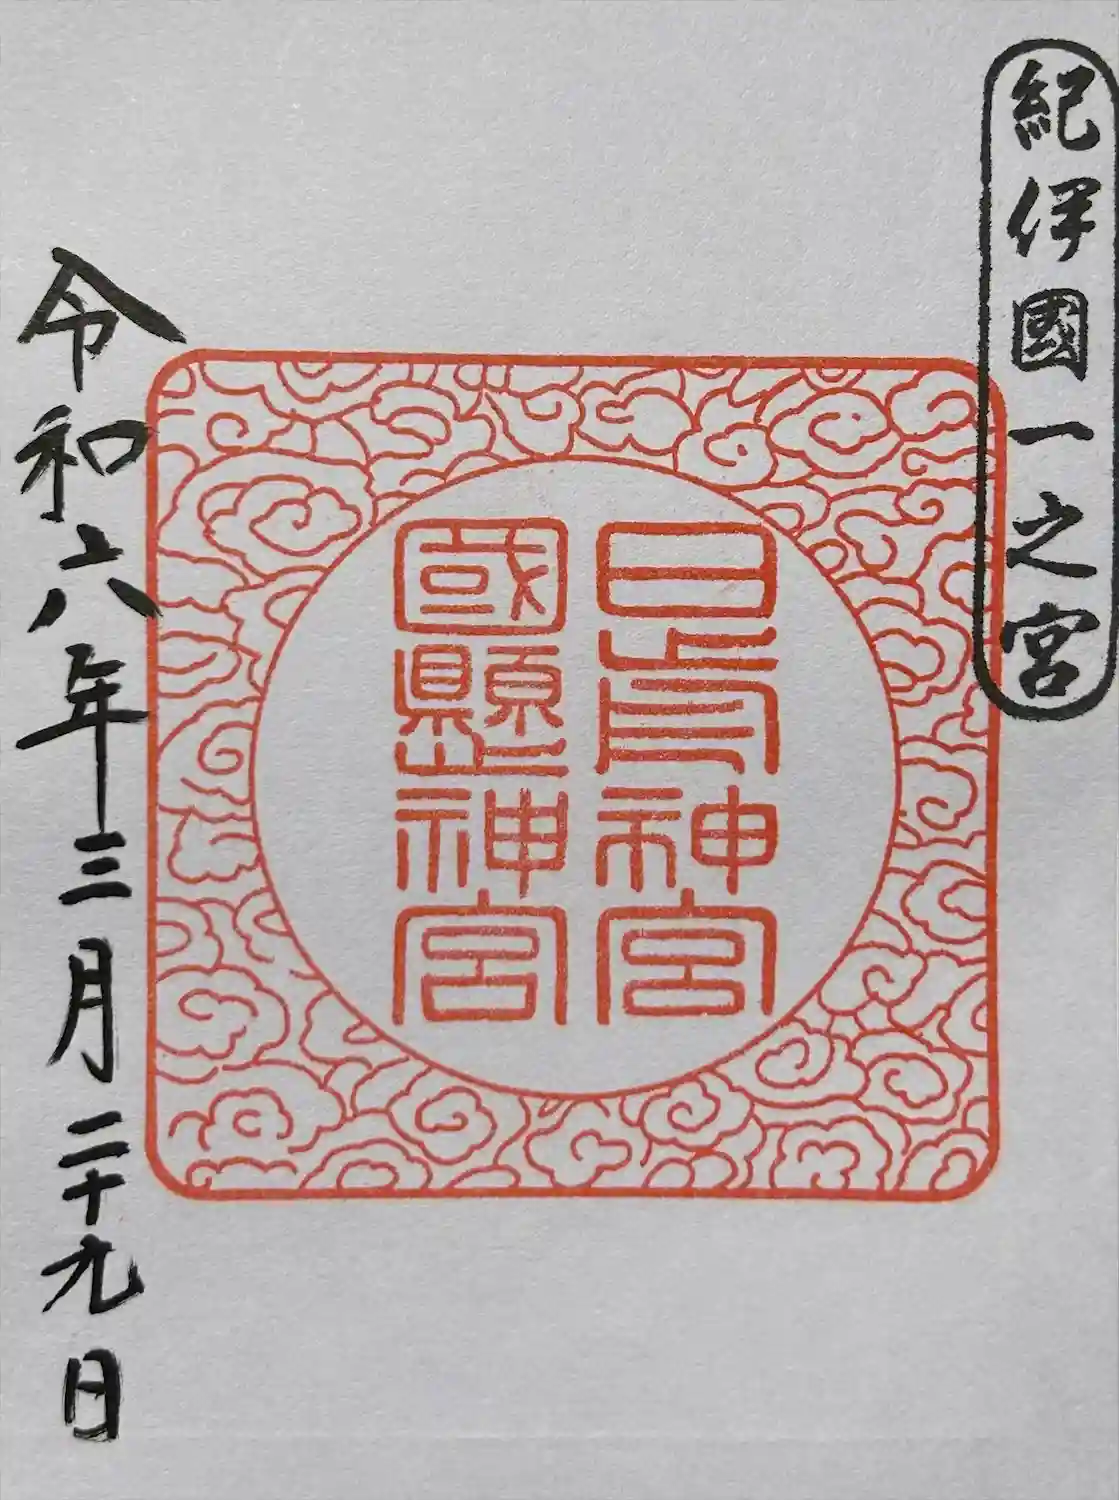 紀伊國一之宮
日前神宮
國懸神宮
令和六年三月二十九日